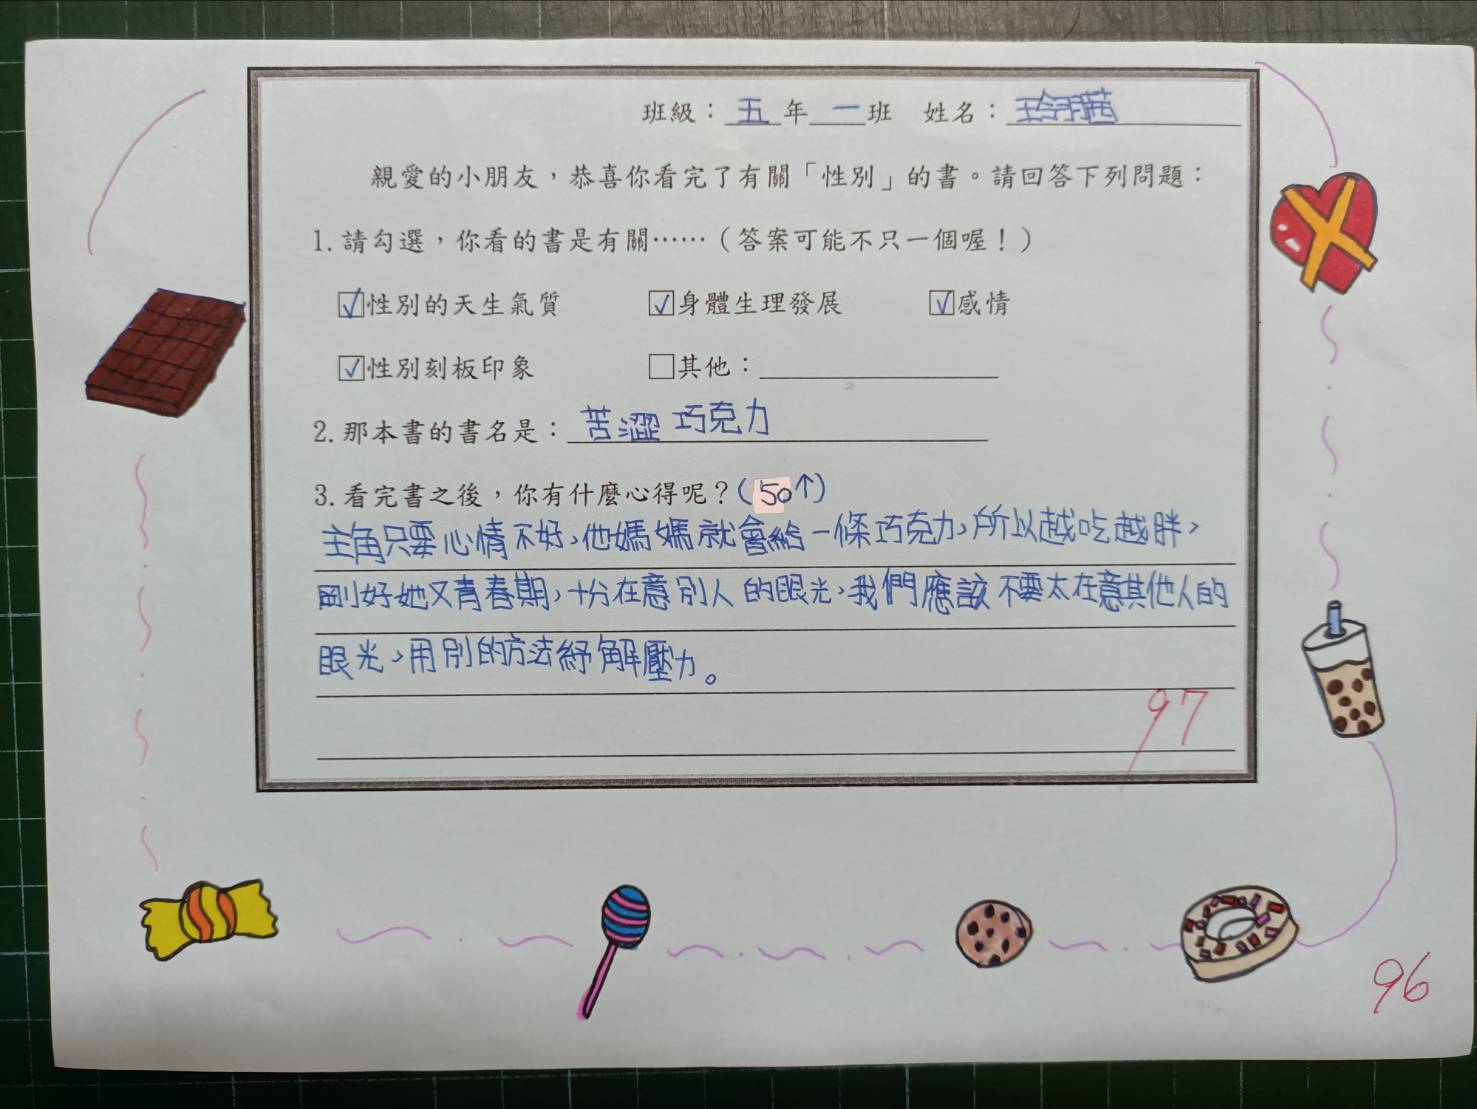 班級：五年一班 姓名：
親愛的小朋友，恭喜你看完了有關「性別」的書。請回答下列問題：
1.請勾選，你看的書是有關……（答案可能不只一個喔！）
☑性別的天生氣質 ☑身體生理發展 ☑感情
☑性別刻板印象 □其他：
2.那本書的書名是：苦澀巧克力
3.看完書之後，你有什麼心得呢？(50↑)
主角只要心情不好，他媽媽就會給一條巧克力，所以越吃越胖，
剛好她又青春期，十分在意別人的眼光，我們應該不要太在意其他人的
眼光，用別的方法紓解壓力。
97
96